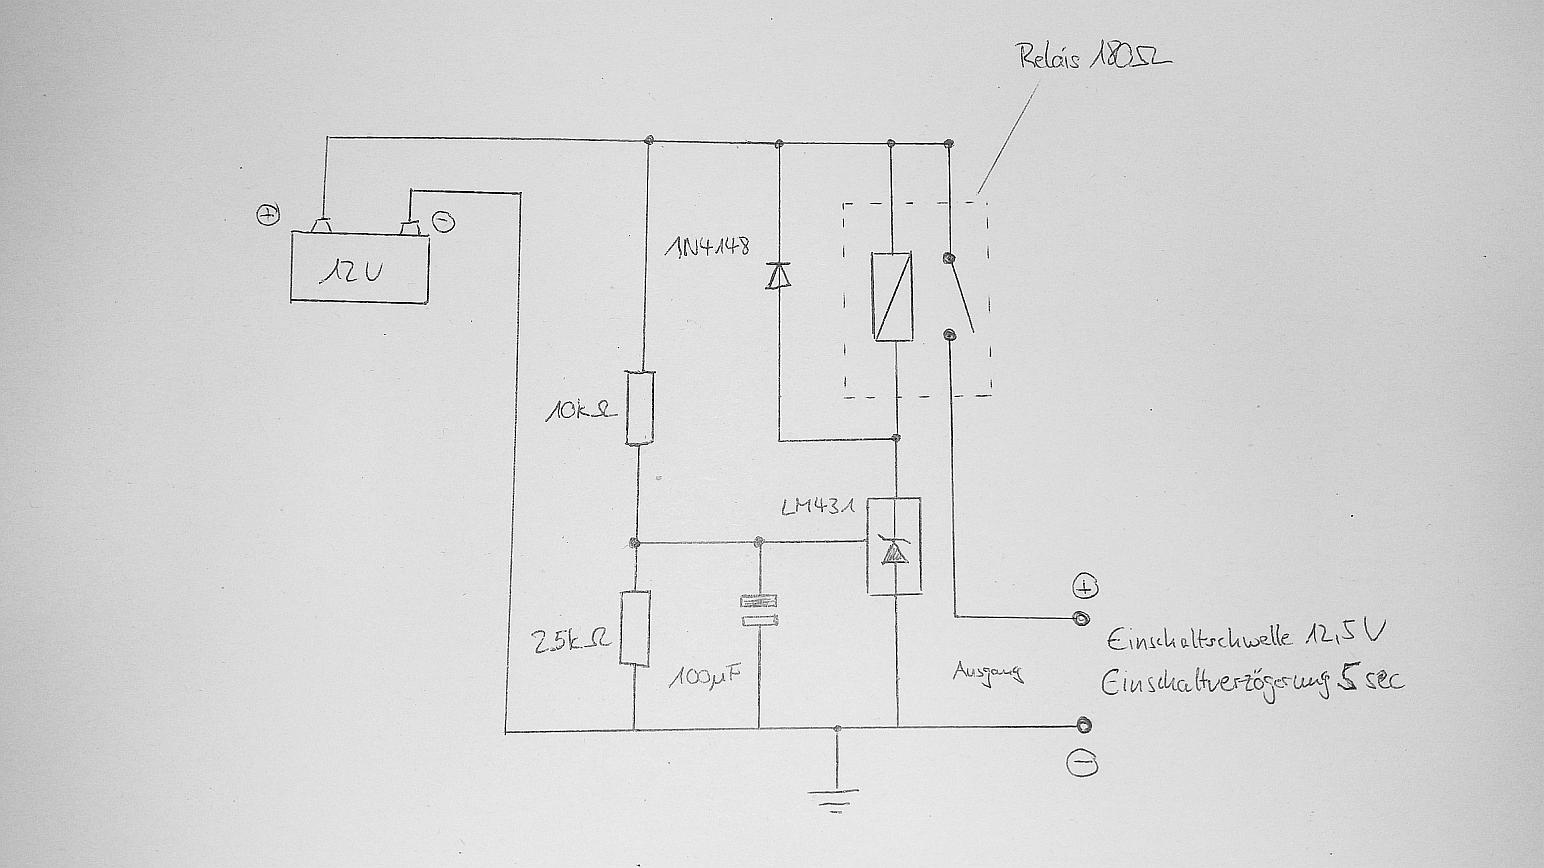 Relais 180Ω
⊕
⊖
12V
1N4148
10kΩ
LM431
2.5kΩ
100µF
⊕
Einschaltschwelle 12,5V
Ausgang
Einschaltverzögerung 5 sec
⊖